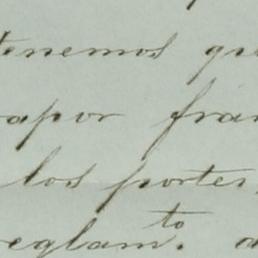 tenemos qu
vapor fran
los portes,
reglam.to d